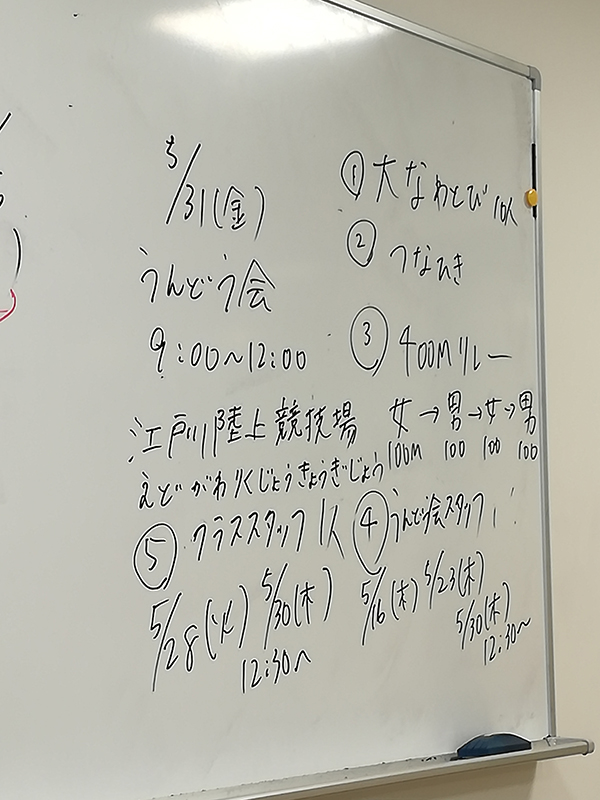 5/31(金)
うんどう会
9:00〜12:00
江戸川陸上競技場
えどがわりくじょうきょうぎじょう
① 大なわとび 10人
② つなひき
③ 400Mリレー
女→男→女→男
100M 100 100 100
④ うんどう会スタッフ
5/16(木) 5/23(木)
5/30(木)
12:30〜
⑤ クラススタッフ 1人
5/28(火) 5/30(木)
12:30〜